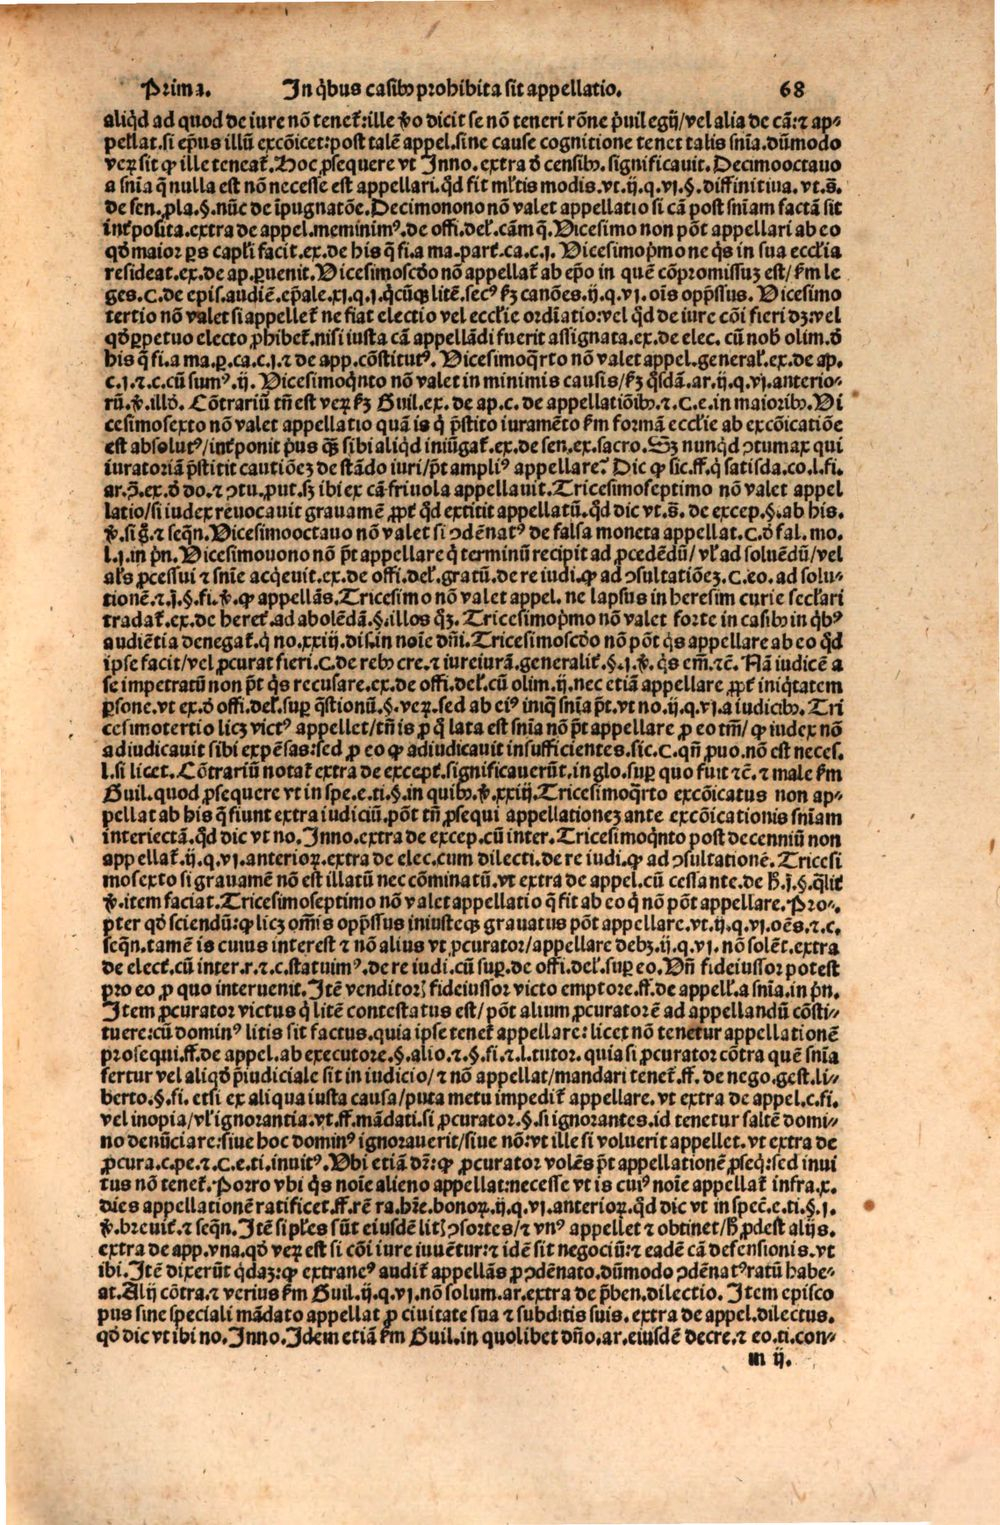 Prima. In q̃bus casib⁹ prohibita sit appellatio. 68
aliq̃d ad quod de iure nõ tenet̃: ille ṽo dicit se nõ teneri rõne p̃uilegij/vel alia de cã: ⁊ ap⸗
pellat. si ep̃us illũ excõicet: post talẽ appel. sine cause cognitione tenet talis snĩa. dũmodo
verꝝ sit ꝙ ille teneat̃. Hoc ꝓsequere vt Inno. extra d̃ censib⁹. significauit. Decimooctauo
a snĩa q̃ nulla est nõ necesse est appellari. q̃d fit ml̃tis modis. vt. ij. q. vj. §. diffinitiua. vt. s̃.
de sen. ꝓla. §. nũc de ĩpugnatõe. Decimonono nõ valet appellatio si cã post snĩam factã sit
int̃posita. extra de appel. meminim⁹. de offi. del̃. cãm q̃. Vicesimo non põt appellari ab eo
qd̃ maior p̃s capl̃i facit. ex. de his q̃ fi. a ma. part̃. ca. c. j. Vicesimop̃mo ne q̃s in sua eccl̃ia
resideat. ex. de ap. ꝑuenit. Vicesimoscd̃o nõ appellat̃ ab ep̃o in quẽ cõpromissuꝫ est/ẜm le
ges. C. de epis. audiẽ. ep̃ale. xj. q. j. q̃cũqꝫ litẽ. sec⁹ ẜꝫ canões. ij. q. vj. oĩs opp̃ssus. Vicesimo
tertio nõ valet si appellet̃ ne fiat electio vel eccl̃ie ordĩatio: vel q̃d de iure cõi fieri dꝫ: vel
qd̃ ꝑpetuo electo ꝓhibet̃. nisi iusta cã appellãdi fuerit assignata. ex. de elec. cũ nob̃ olim. d̃
his q̃ fi. a ma. ꝑ. ca. c. j. ⁊ de app. cõstitut⁹. Vicesimoq̃rto nõ valet appel. general̃. ex. de ap.
c. j. ⁊ c. cũ sum⁹. ij. Vicesimoq̃nto nõ valet in minimis causis/ẜꝫ q̃sdã. ar. ij. q. vj. anterio⸗
rũ. ꝟ. illd̃. Cõtrariũ tñ est verꝝ ẜꝫ Guil. ex. de ap. c. de appellatiõib⁹. ⁊. C. e. in maiorib⁹. Vi
cesimosexto nõ valet appellatio quã is q̃ p̃stito iuramento ẜm formã eccl̃ie ab excõicatiõe
est absolut⁹/int̃ponit p̃us q̃ꝫ sibi aliq̃d iniũgat̃. ex. de sen. ex. sacro. Sꝫ nunq̃d ↄtumax qui
iuratoriã p̃stitit cautiõeꝫ de stãdo iuri/p̃t ampli⁹ appellare? Dic ꝙ sic. ff. q̃ satisda. co. l. fi.
ar. ↄ̃. ex. d̃ do. ⁊ ↄtu. ꝓut. sꝫ ibi ex cã friuola appellauit. Tricesimoseptimo nõ valet appel
latio/si iudex reuocauit grauamẽ ꝓpt̃ q̃d extitit appellatũ. q̃d dic vt. s̃. de excep. §. ab his.
ꝟ. si g̃. ⁊ seq̃n. Vicesimooctauo nõ valet si ↄdẽnat⁹ de falsa moneta appellat. C. d̃ fal. mo.
l. j. in p̃n. Vicesimouono nõ p̃t appellare q̃ terminũ recipit ad ꝓcedẽdũ/vl̃ ad soluẽdũ/vel
al̃s ꝓcessui ⁊ snĩe acq̃euit. ex. de offi. del̃. gratũ. de re iudi. ꝙ ad ↄsultatiõeꝫ. C. eo. ad solu⸗
tionẽ. ⁊. j̃. §. fi. ꝟ. ꝙ appellãs. Tricesimo nõ valet appel. ne lapsus in heresim curie secl̃ari
tradat̃. ex. de heret̃. ad abolẽdã. §. illos q̃ꝫ. Tricesimop̃mo nõ valet forte in casib⁹ in q̃b⁹
audiẽtia denegat̃. q̃ no. xxiij. dis. in noĩe dñi. Tricesimoscd̃o nõ põt q̃s appellare ab eo q̃d
ipse facit/vel ꝓcurat fieri. C. de reb⁹ cre. ⁊ iureiurã. generalit̃. §. j. ꝟ. q̃s em̃. ⁊c̃. Nã iudicẽ a
se impetratũ non p̃t q̃s recusare. ex. de offi. del̃. cũ olim. ij. nec etiã appellare ꝓpt̃ iniq̃tatem
ꝑsone. vt ex. d̃ offi. del̃. suꝑ q̃stionũ. §. verꝝ. sed ab ei⁹ iniq̃ snĩa p̃t. vt no. ij. q. vj. a iudicib⁹. Tri
cesimotertio licꝫ vict⁹ appellet/tñ is ꝓ q̃ lata est snĩa nõ p̃t appellare ꝓ eo tm̃/ꝙ iudex nõ
adiudicauit sibi expẽsas: sed ꝓ eo ꝙ adiudicauit insufficientes. sic. C. qñ ꝓuo. nõ est neces.
l. si licet. Cõtrariũ notat̃ extra de except̃. significauerũt. in glo. suꝑ quo fuit ⁊c̃. ⁊ male ẜm
Guil. quod ꝓsequere vt in spe. e. ti. §. in quib⁹. ꝟ. xxiij. Tricesimoq̃rto excõicatus non ap⸗
pellat ab his q̃ fiunt extra iudiciũ. põt tñ ꝓsequi appellationeꝫ ante excõicationis snĩam
interiectã. q̃d dic vt no. Inno. extra de excep. cũ inter. Tricesimoq̃nto post decenniũ non
appellat̃. ij. q. vj. anterioꝝ. extra de elec. cum dilecti. de re iudi. ꝙ ad ↄsultationẽ. Tricesi
mosexto si grauamẽ nõ est illatũ nec cõminatũ. vt extra de appel. cũ cessante. de h̃. j̃. §. q̃lit̃
ꝟ. item faciat. Tricesimoseptimo nõ valet appellatio q̃ fit ab eo q̃ nõ põt appellare. Pro⸗
pter qd̃ sciendũ: ꝙ licꝫ om̃is opp̃ssus iniusteqꝫ grauatus põt appellare. vt. ij. q. vj. oẽs. ⁊. c.
seq̃n. tamẽ is cuius interest ⁊ nõ alius vt ꝓcurator/appellare debꝫ. ij. q. vj. nõ solẽt. extra
de elect̃. cũ inter. r. ⁊. c. statuim⁹. de re iudi. cũ suꝑ. de offi. del̃. suꝑ eo. Vñ fideiussor potest
pro eo ꝓ quo interuenit. Itẽ venditor ⁊ fideiussor victo emptore. ff. de appell̃. a snĩa. in p̃n.
Item ꝓcurator victus q̃ litẽ contestatus est/põt alium ꝓcuratorẽ ad appellandũ cõsti⸗
tuere: cũ domin⁹ litis sit factus. quia ipse tenet̃ appellare: licet nõ tenetur appellationẽ
prosequi. ff. de appel. ab executore. §. alio. ⁊. §. fi. ⁊. l. tutor. quia si ꝓcurator cõtra quẽ snĩa
fertur vel aliqd̃ p̃iudiciale sit in iudicio/⁊ nõ appellat/mandari tenet̃. ff. de nego. gest. li⸗
berto. §. fi. etsi ex aliqua iusta causa/puta metu impedit̃ appellare. vt extra de appel. c. fi.
vel inopia/vl̃ ignorantia. vt. ff. mãdati. si ꝓcurator. §. si ignorantes. id tenetur saltẽ domi⸗
no denũciare: siue hoc domin⁹ ignorauerit/siue nõ: vt ille si voluerit appellet. vt extra de
ꝓcura. c. pe. ⁊. C. e. ti. inuit⁹. Vbi etiã dr̃: ꝙ ꝓcurator volẽs p̃t appellationẽ ꝓseq̃: sed inui
tus nõ tenet̃. Porro vbi q̃s noĩe alieno appellat: necesse vt is cui⁹ noĩe appellat̃ infra. x.
dies appellationẽ ratificet. ff. rẽ ra. hr̃e. bonoꝝ. ij. q. vj. anterioꝝ. q̃d dic vt in speč. e. ti. §. j.
ꝟ. breuit̃. ⁊ seq̃n. Itẽ si pl̃es sũt eiusdẽ litl̃ ↄsortes/⁊ vn⁹ appellet ⁊ obtinet/h̃ ꝓdest alijs.
extra de app. vna. qd̃ verꝝ est si cõi iure iuuẽtur: ⁊ idẽ sit negociũ: ⁊ eadẽ cã defensionis. vt
ibi. Itẽ dixerũt q̃daꝫ: ꝙ extrane⁹ audit̃ appellãs ꝓ ↄdẽnato. dũmodo ↄdẽnat⁹ ratũ habe⸗
at. Alij cõtra. ⁊ verius ẜm Guil. ij. q. vj. nõ solum. ar. extra de p̃ben. dilectio. Item episco
pus sine speciali mãdato appellat ꝓ ciuitate sua ⁊ subditis suis. extra de appel. dilectus.
qd̃ dic vt ibi no. Inno. Idem etiã ẜm Guil. in quolibet dño. ar. eiusdẽ decre. ⁊ eo. ti. con⸗
m ij.